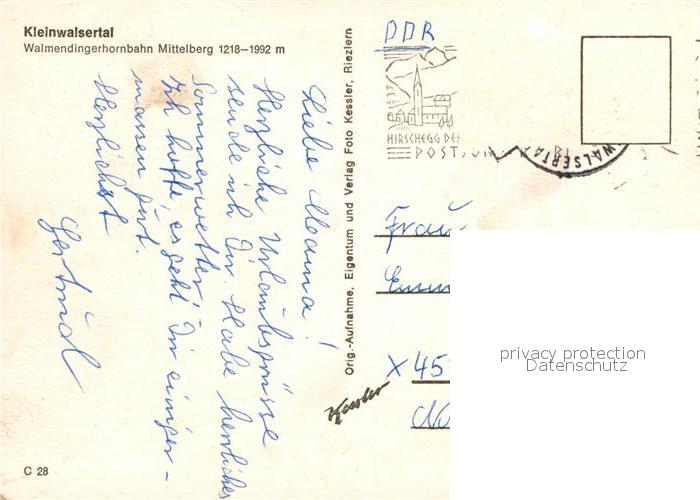 Kleinwalsertal
Walmendingerhornbahn Mittelberg 1218–1992 m
Liebe Mama!
Herzliche Urlaubsgrüsse
sende ich Dir. Habe herrliches
Sommerwetter.
Ich hoffe, es geht Dir einiger-
massen gut.
Herzlichst
Gertrud
C 28
Orig.-Aufnahme, Eigentum und Verlag Foto Kessler, Riezlern
Kessler
DDR
HIRSCHEGG DE
POST
WALSERTA
Frau
X 45
privacy protection
Datenschutz